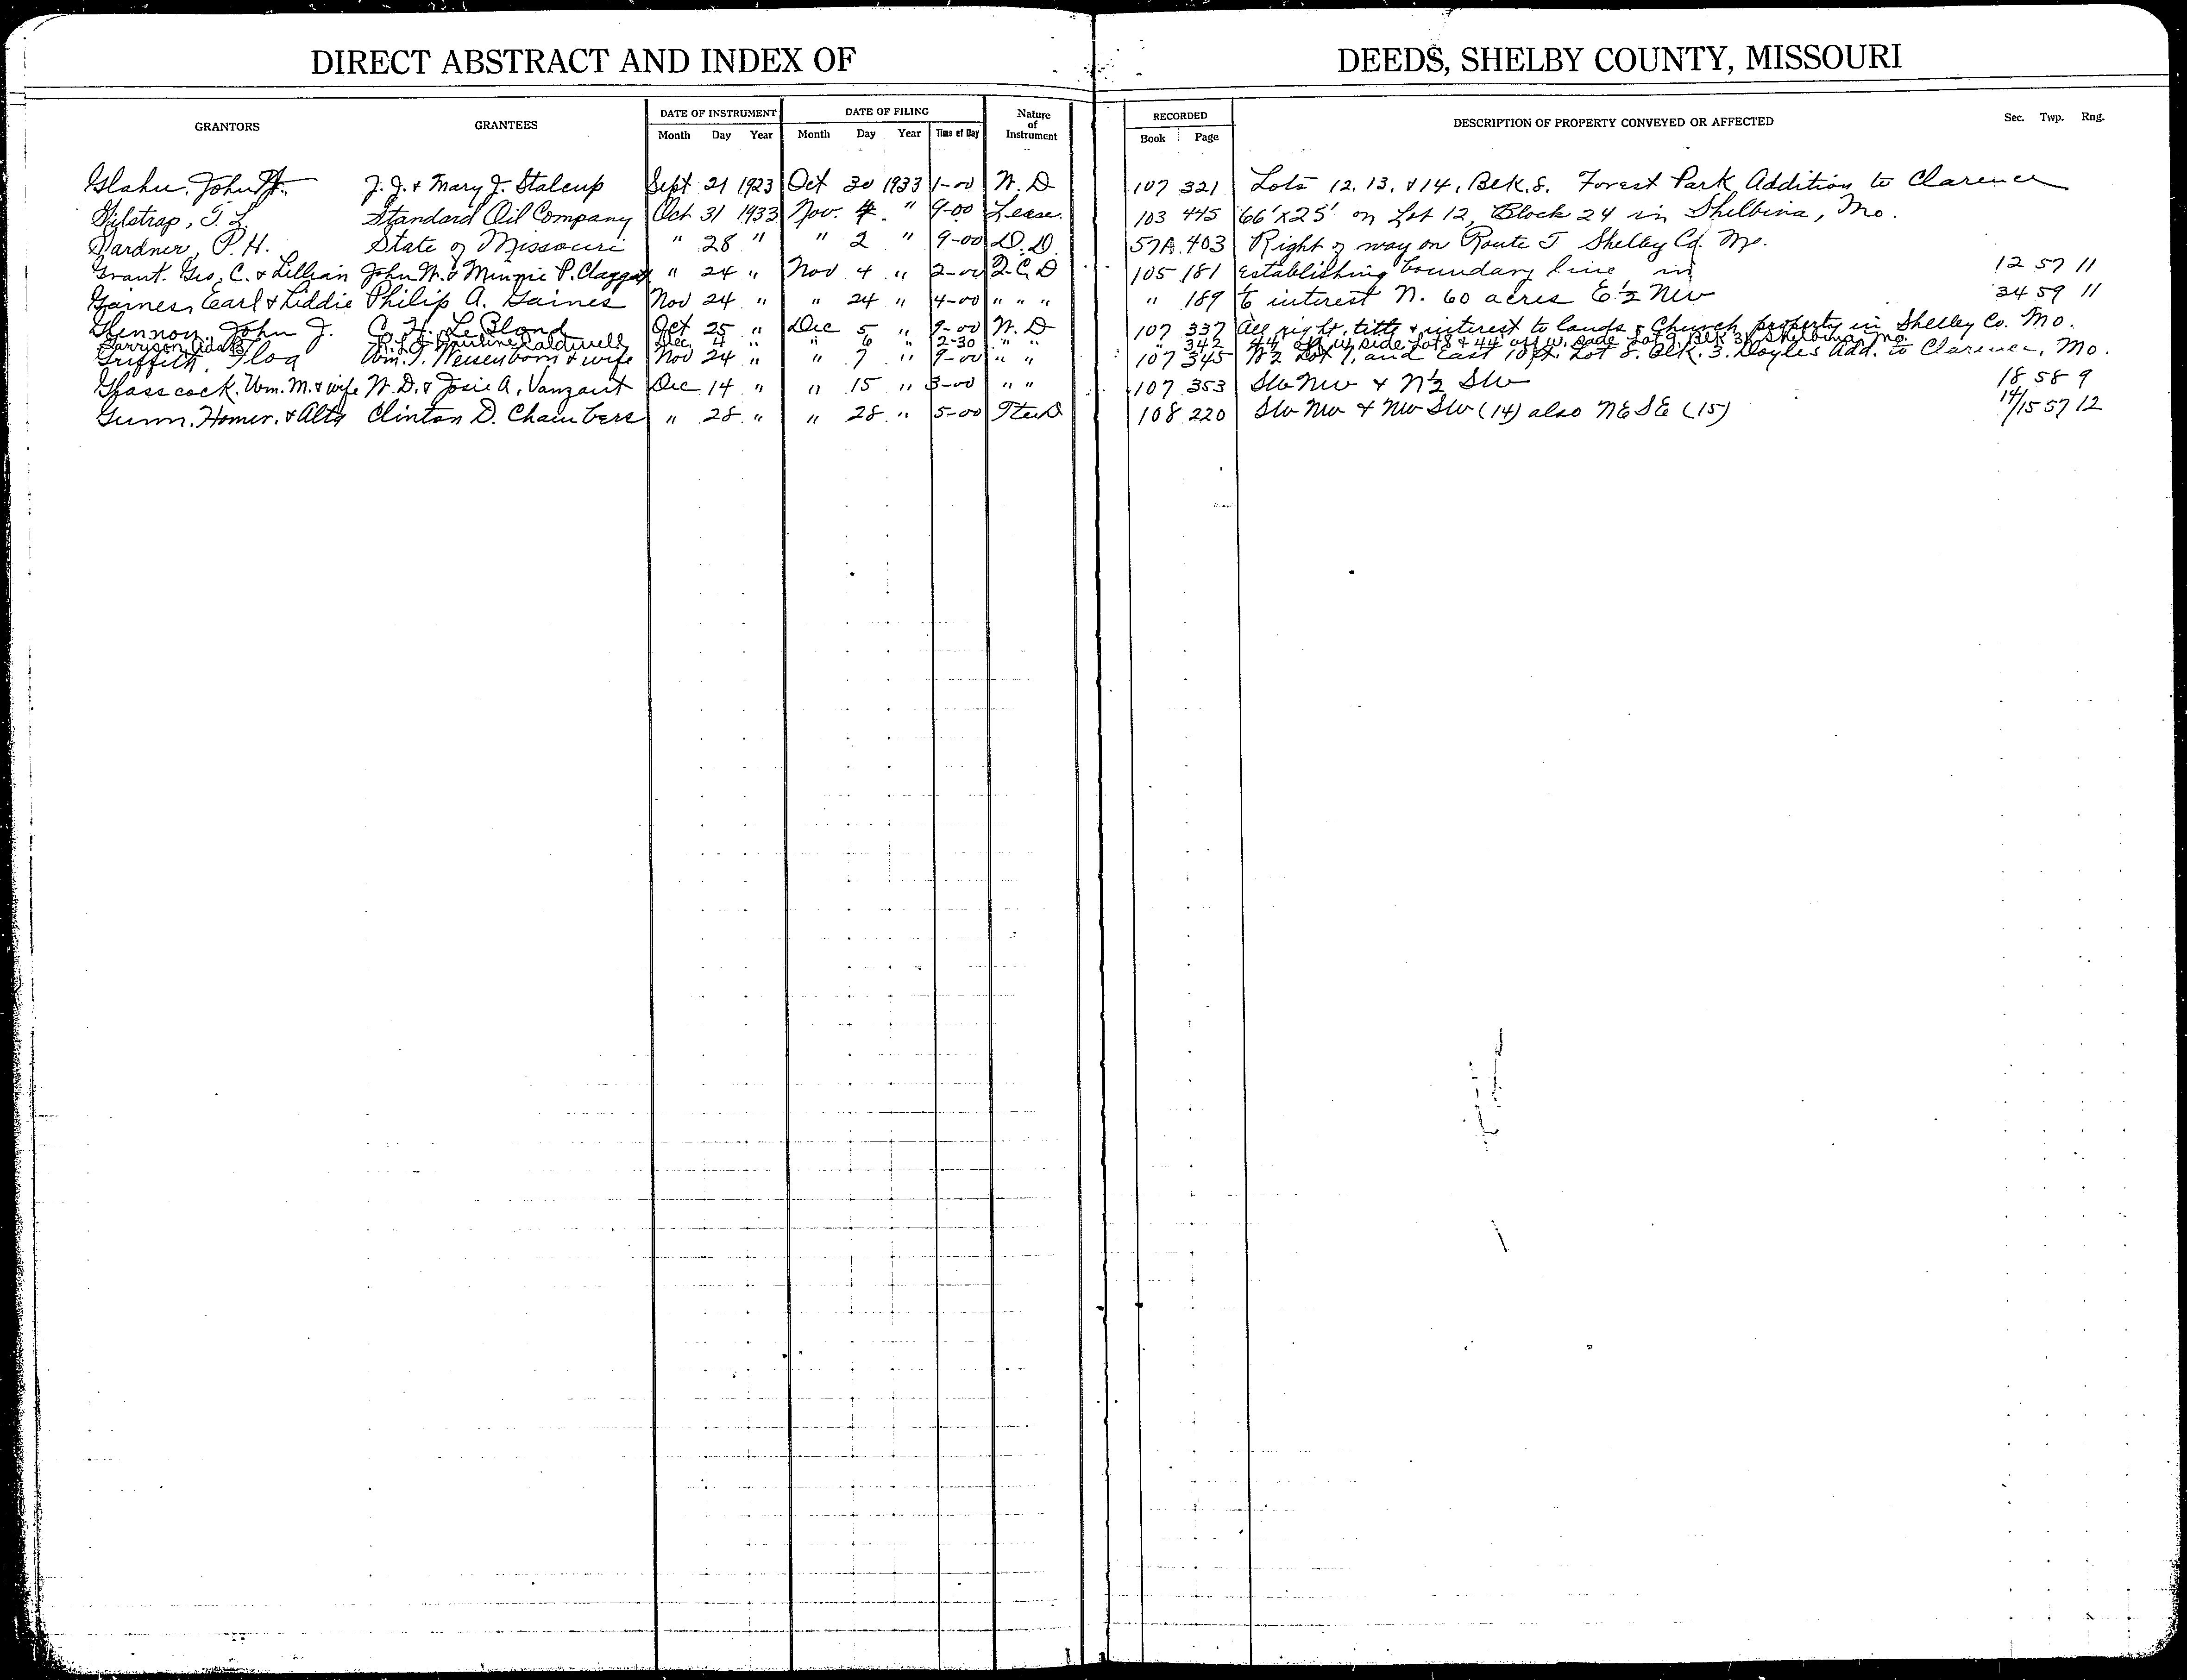 DIRECT ABSTRACT AND INDEX OF DEEDS, SHELBY COUNTY, MISSOURI
GRANTORS GRANTEES DATE OF INSTRUMENT DATE OF FILING Nature of Instrument RECORDED DESCRIPTION OF PROPERTY CONVEYED OR AFFECTED Sec. Twp. Rng.
Month Day Year Month Day Year Time of Day Book Page
Glahn, John J. J. & Mary J. Stalcup Sept 21 1923 Oct 30 1933 1-00 W. D 107 321 Lots 12, 13, & 14, Blk. 8. Forest Park Addition to Clarence
Gilstrap, T. L. Standard Oil Company Oct 31 1933 Nov. 4 " 9-00 Lease. 103 445 66' X 25' on Lot 12, Block 24 in Shelbina, Mo.
Gardner, P. H. State of Missouri " 28 " " 2 " 9-00 D. D. 57A 403 Right of way on Route T Shelby Co. Mo.
Grant. Geo. C. & Lillian John W. & Minnie P. Claggett " 24 " Nov 4 " 2-00 Q. C. D 105 181 Establishing boundary line in 12 57 11
Gaines, Earl & Liddie Philip A. Gaines Nov 24 " " 24 " 4-00 " " " " 189 1/6 interest N. 60 acres E 1/2 NW 34 59 11
Glennon, John J. C. H. Le Blond Oct 25 " Dec 5 " 9-00 W. D 107 337 All right, title & interest to lands & Church property in Shelby Co. Mo.
Garrison, Ada B R. L. & Pauline Caldwell Dec. 4 " " 6 " 2-30 " " " 342 44' off W. side Lot 8 & 44' off W. side Lot 9, Blk 31, Shelbina, Mo.
Griffith, Flog Wm. T. Neuenborn & wife Nov 24 " " 7 " 9-00 " " 107 345 W 1/2 Lot 7, and East 10 ft. Lot 8, Blk. 3. Doyles Add. to Clarence, Mo.
Glasscock, Wm. M. & wife W. D. & Josie A. Vanzant Dec 14 " " 15 " 3-00 " " 107 353 SW NW & N 1/2 SW 18 58 9
Gunn, Homer. & Alta Clinton D. Chambers " 28 " " 28 " 5-00 108 220 SW NW & NW SW (14) also NE SE (15) 14/15 57 12